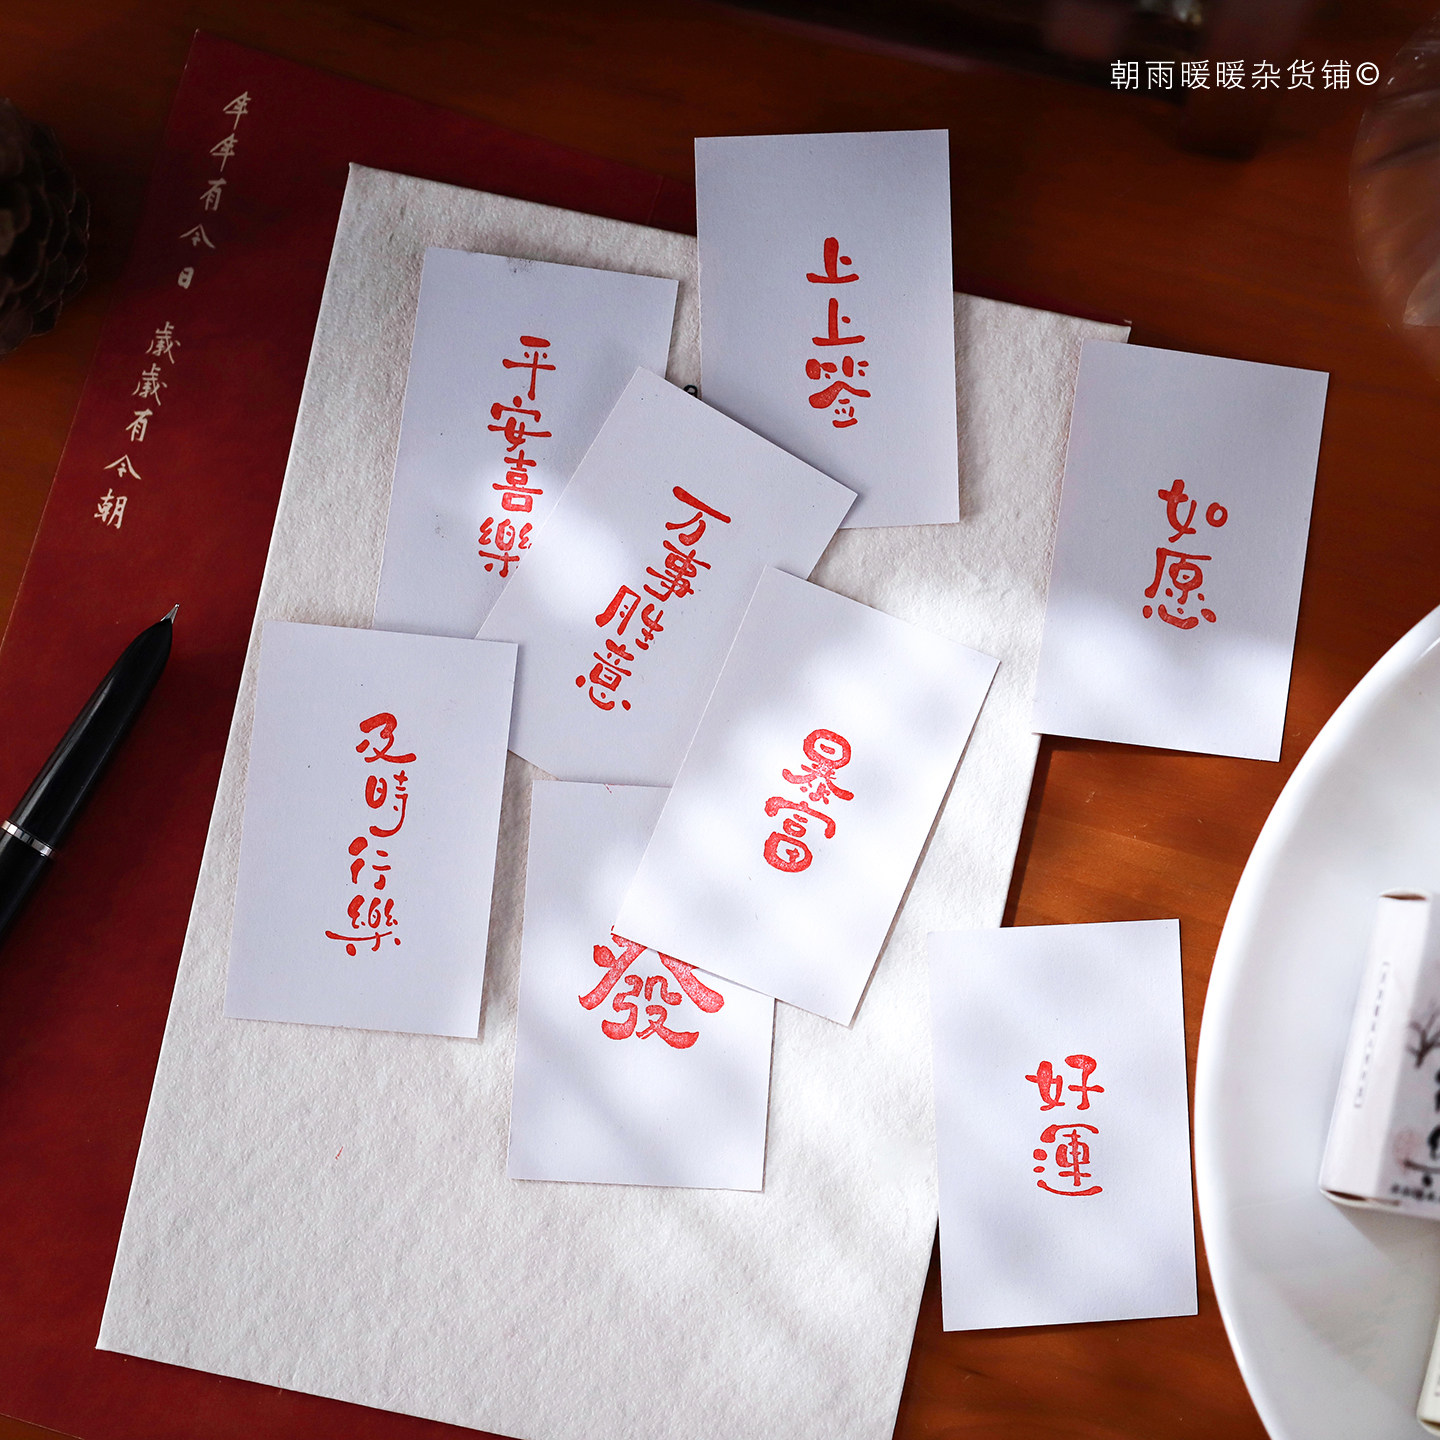 朝雨暖暖杂货铺©
年年有今日 歲歲有今朝
上上签
平安喜樂
万事胜意
如愿
及時行樂
暴富
發
好運